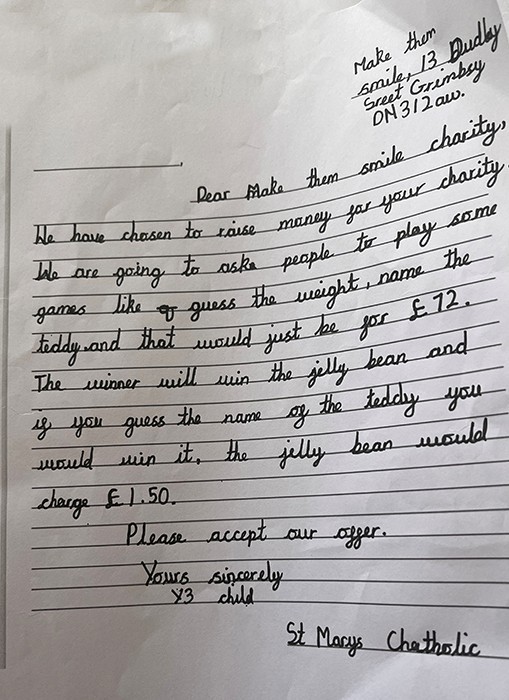 Make them
smile, 13 Dudley
Sreet Grimbsy
DN31 2aw.
Dear Make them smile charity,
We have chosen to raise money for your charity.
We are going to aske people to play some
games like guess the weight, name the
teddy and that would just be for £72.
The winner will win the jelly bean and
if you guess the name of the teddy you
would win it, the jelly bean would
charge £1.50.
Please accept our offer.
Yours sincerely
Y3 child
St Marys Chatholic